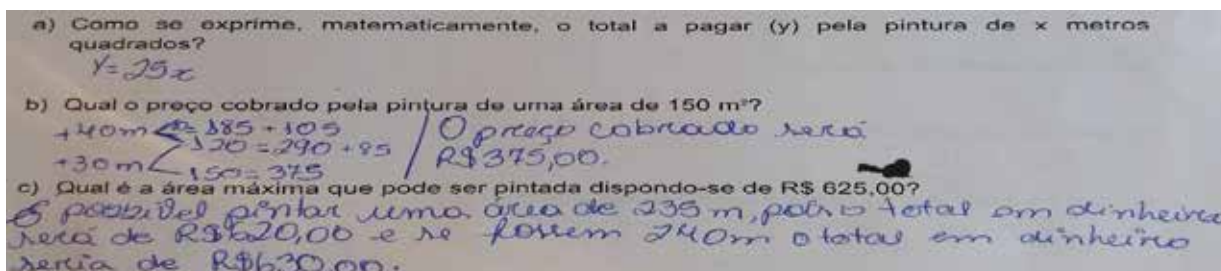 a) Como se exprime, matematicamente, o total a pagar (y) pela pintura de x metros
quadrados?
y=25x
b) Qual o preço cobrado pela pintura de uma área de 150 m²?
+40m 185+105
120=290+85
+30m 150=375
O preço cobrado será
R$375,00.
c) Qual é a área máxima que pode ser pintada dispondo-se de R$ 625,00?
É possivel pintar uma área de 235 m, pois o total em dinheiro
será de R$620,00 e se fossem 240m o total em dinheiro
seria de R$630,00.